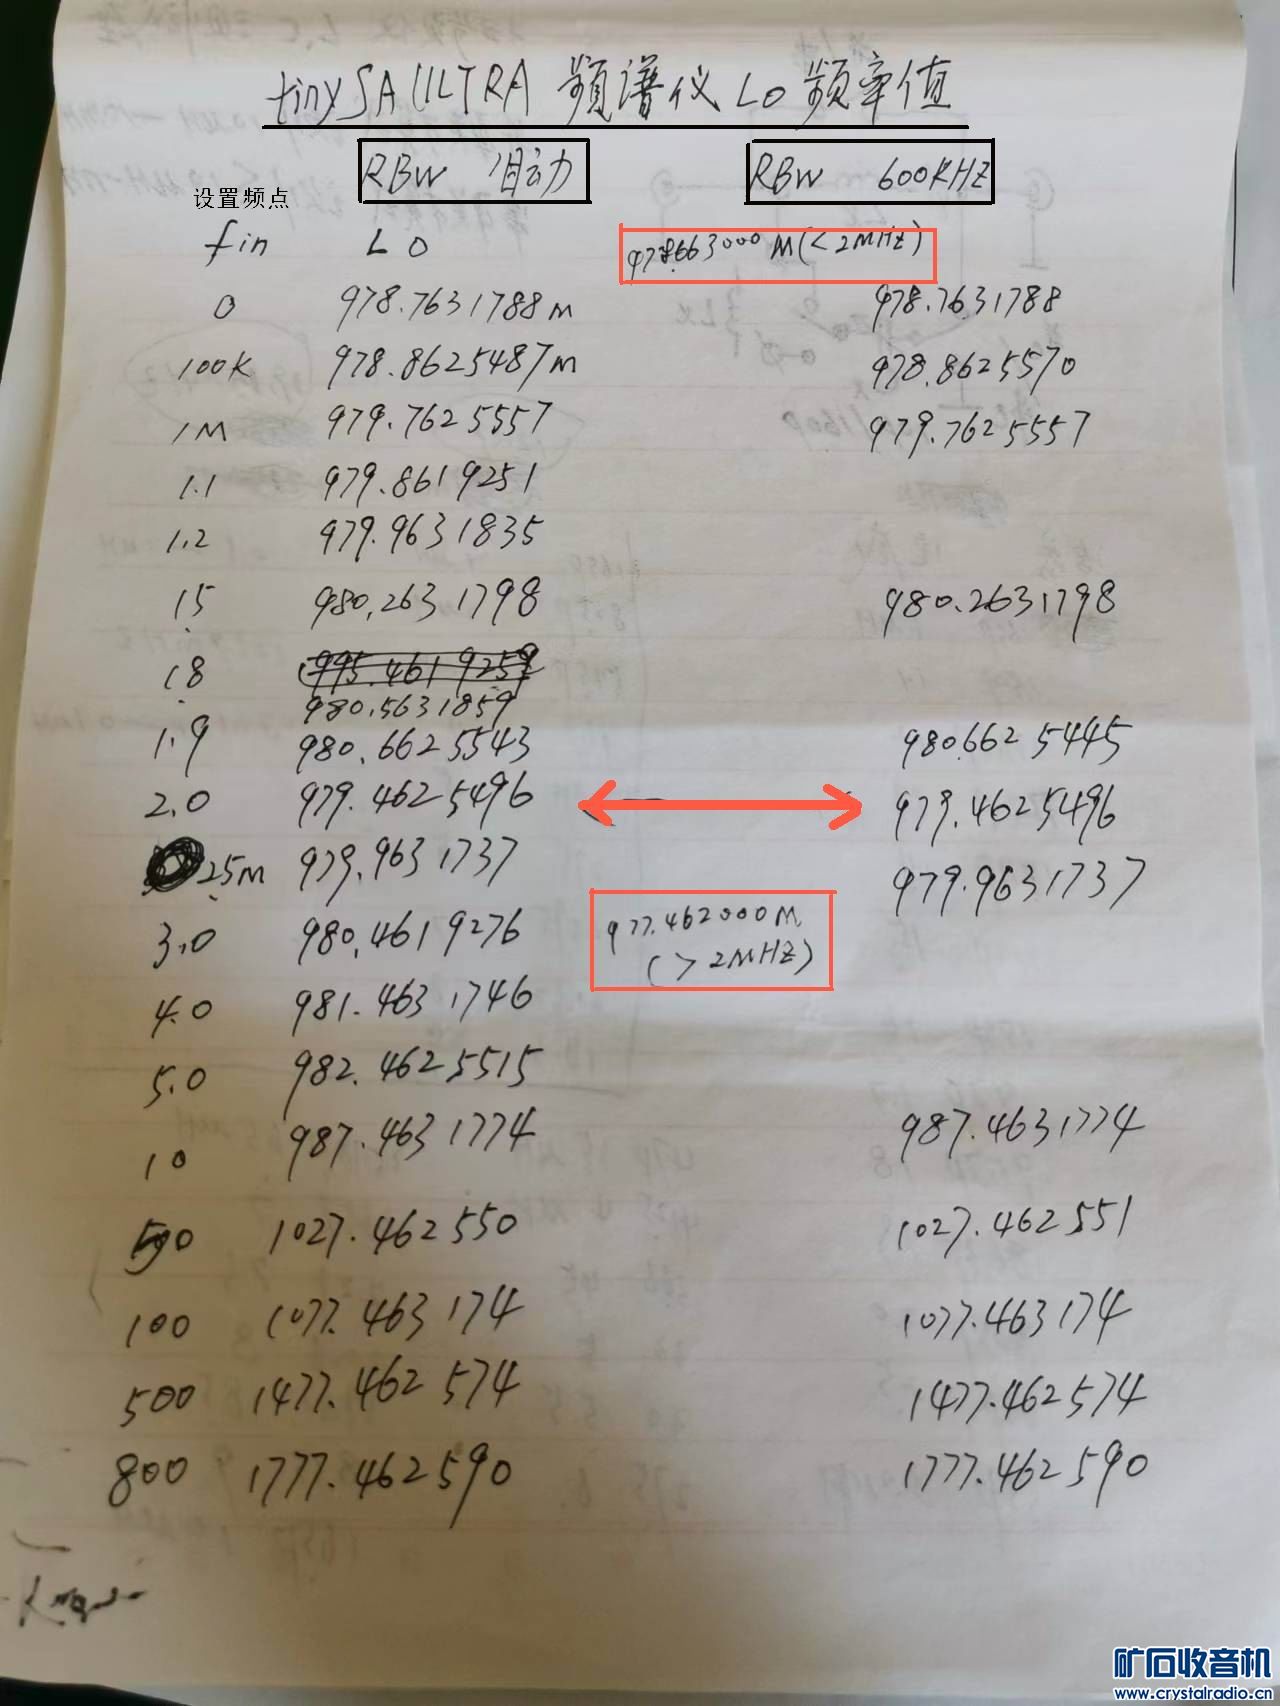 tinySA ULTRA 频谱仪 LO 频率值
RBW 自动 RBW 600KHZ
设置频点
fin LO 978.663000 M(<2MHZ)
0 978.7631788M 978.7631788
100K 978.8625487M 978.8625570
1M 979.7625557 979.7625557
1.1 979.8619251
1.2 979.9631835
1.5 980.2631798 980.2631798
1.8 995.4619259
980.5631859
1.9 980.6625543 980.6625445
2.0 979.4625496 979.4625496
2.5M 979.9631737 979.9631737
3.0 980.4619276 977.462000M
(>2MHZ)
4.0 981.4631746
5.0 982.4625515
10 987.4631774 987.4631774
50 1027.462550 1027.462551
100 1077.463174 1077.463174
500 1477.462574 1477.462574
800 1777.462590 1777.462590
矿石收音机
www.crystalradio.cn